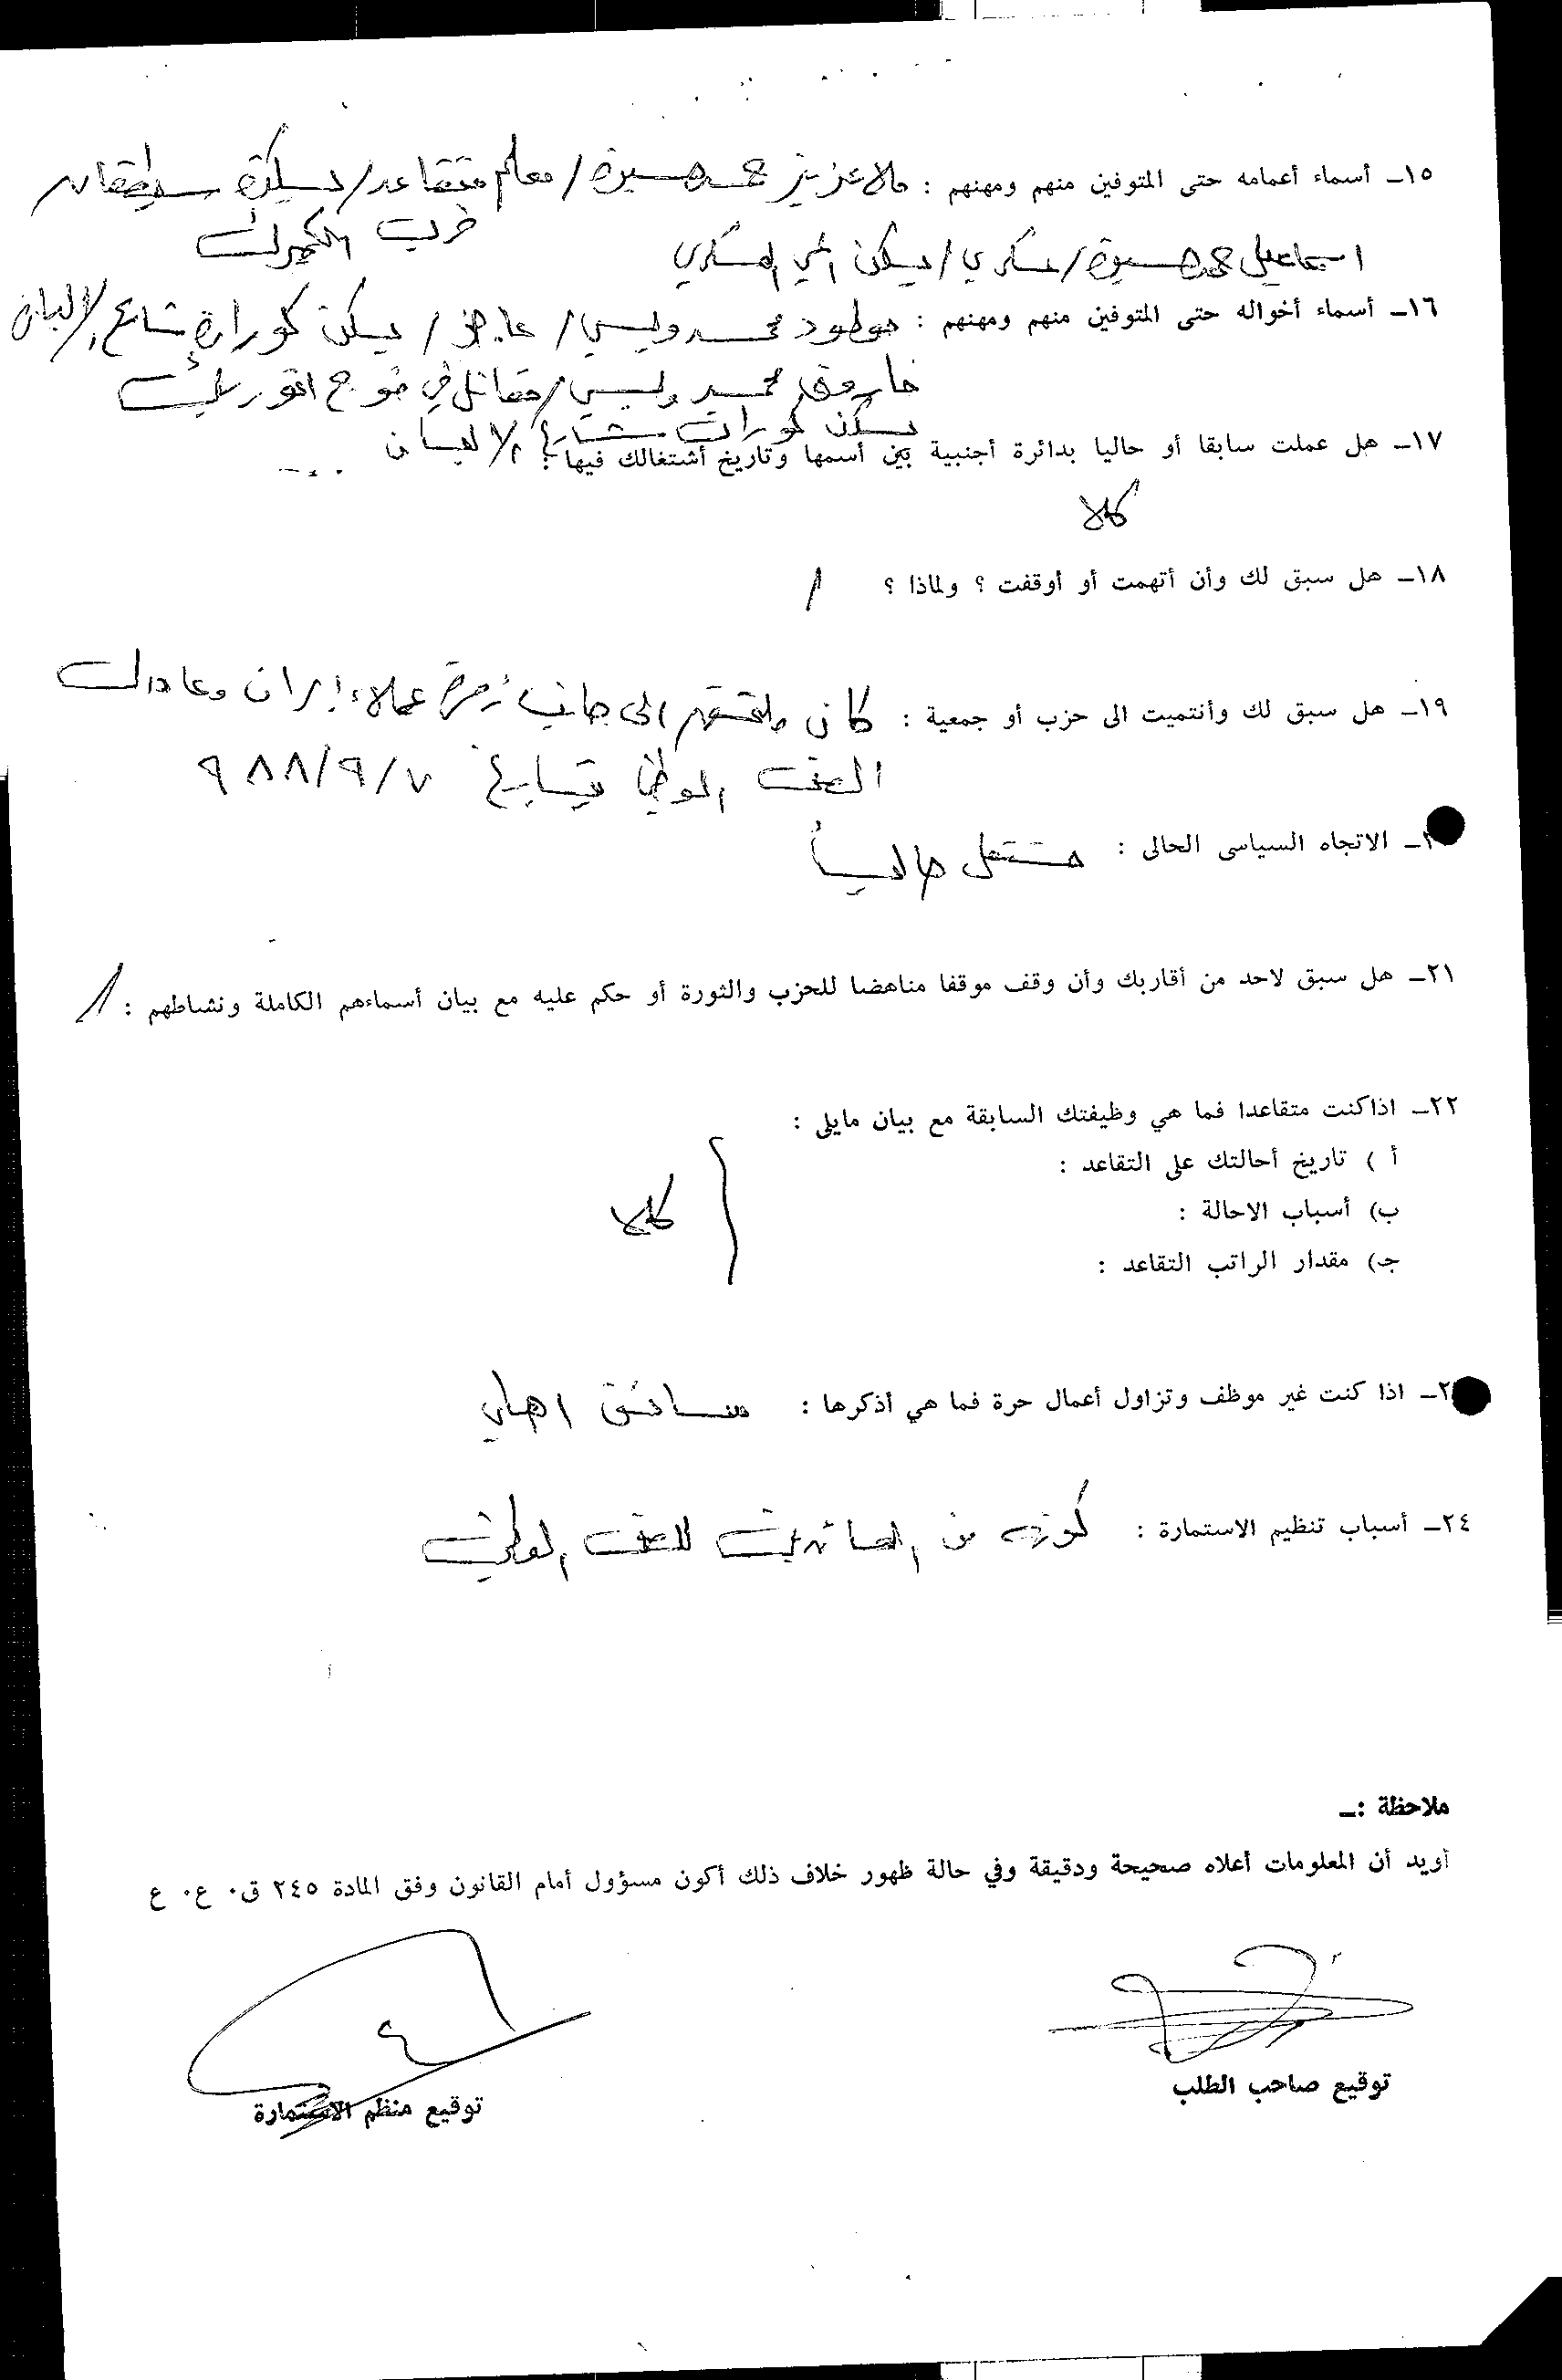 ١٥ـ أسماء أعمامه حتى المتوفين منهم ومهنهم : ملا عزيز محمد / معلم متقاعد / يسكن
قرب الكمرك
اسماعيل محمد / عسكري / يسكن الحي العسكري
١٦ـ أسماء أخواله حتى المتوفين منهم ومهنهم : مولود محمد ويسي / عاجز / يسكن كوران شارع الالبان
فاروق محمد ويسي / مقاتل في فوج انور بيك
يسكن كوران شارع الالبان
١٧ـ هل عملت سابقا أو حاليا بدائرة أجنبية بين أسمها وتاريخ أشتغالك فيها :
كلا
١٨ـ هل سبق لك وأن أتهمت أو أوقفت ؟ ولماذا ؟ /
١٩ـ هل سبق لك وأنتميت الى حزب أو جمعية : كان ملتحق الى جانب زمرة عملاء ايران وعاد الى
الصف الوطني بتاريخ ٩٨٨/٩/٧
ـ الاتجاه السياسى الحالى : مستقل حالياً
٢١ـ هل سبق لاحد من أقاربك وأن وقف موقفا مناهضا للحزب والثورة أو حكم عليه مع بيان أسماءهم الكاملة ونشاطهم : //
٢٢ـ اذاكنت متقاعدا فما هي وظيفتك السابقة مع بيان مايلى :
أ ) تاريخ أحالتك على التقاعد :
ب) أسباب الاحالة :
كلا
جـ) مقدار الراتب التقاعد :
٢ـ اذا كنت غير موظف وتزاول أعمال حرة فما هي أذكرها : سائق اهلي
٢٤ـ أسباب تنظيم الاستمارة : كونه من العائدين للصف الوطني
ملاحظة :ـ
أويد أن المعلومات أعلاه صحيحة ودقيقة وفي حالة ظهور خلاف ذلك أكون مسؤول أمام القانون وفق المادة ٢٤٥ ق٠ ع٠ ع
توقيع صاحب الطلب
توقيع منظم الاستمارة